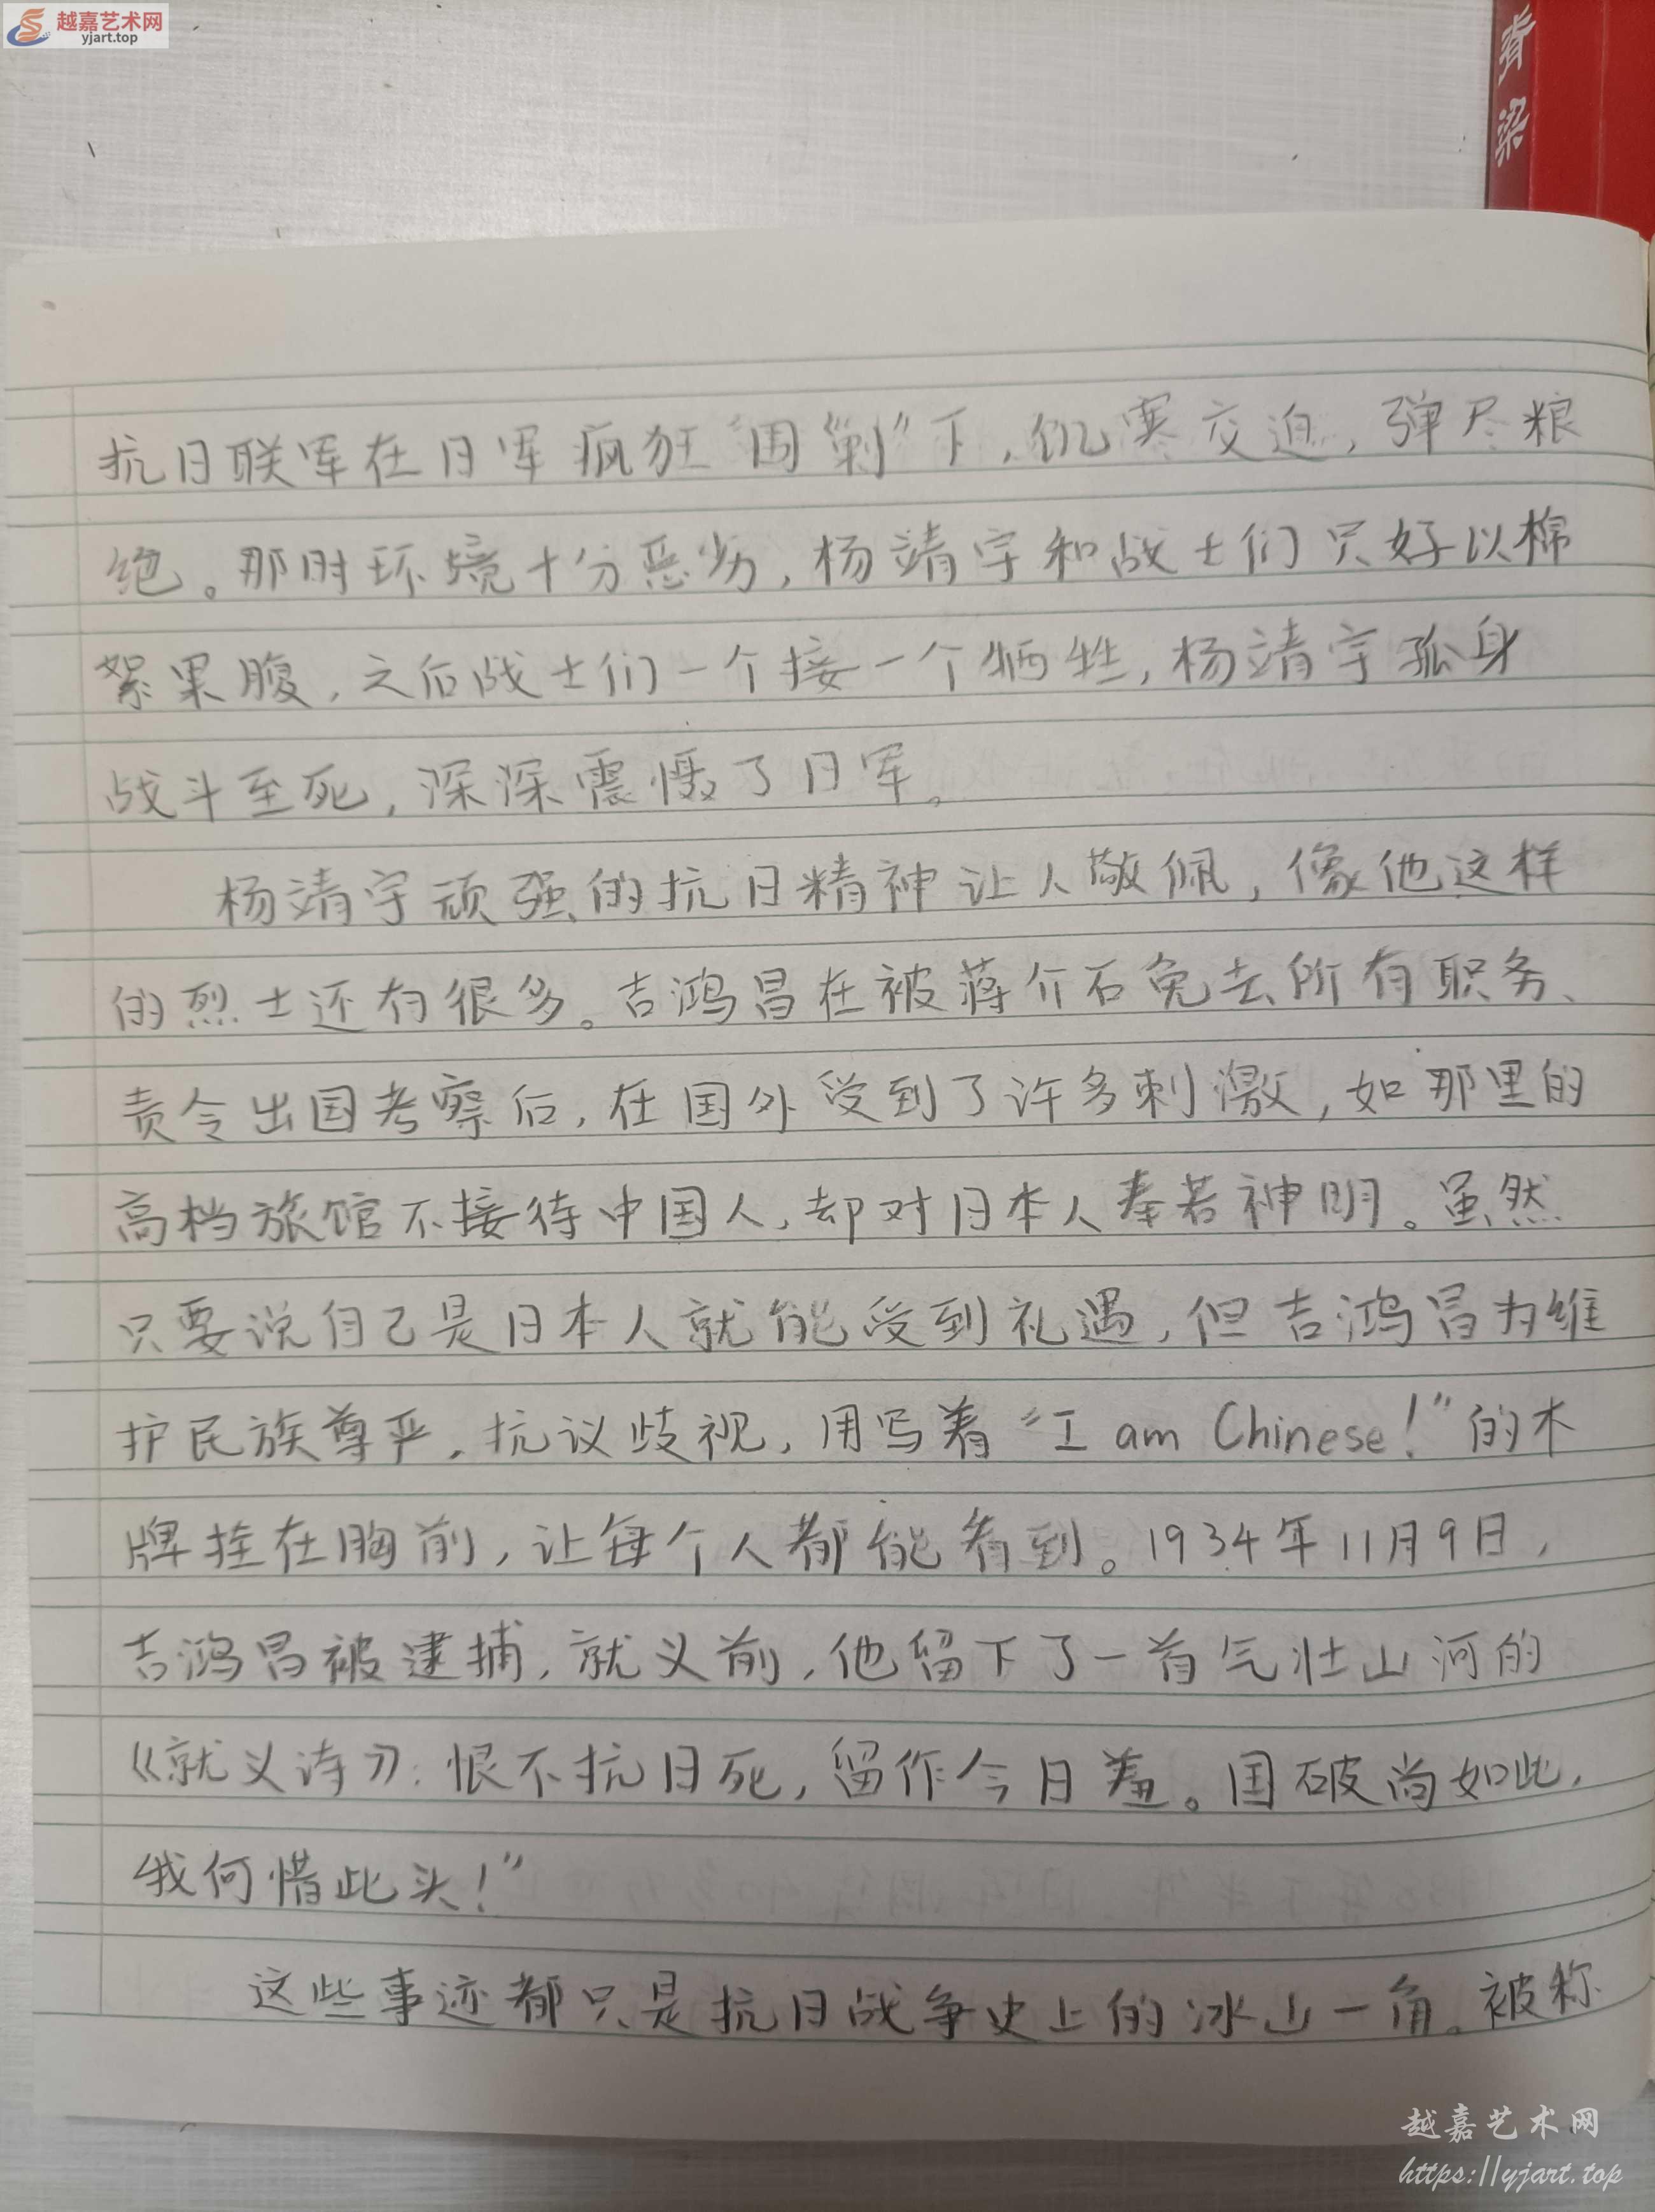 越嘉艺术网
yjart.top
脊梁
抗日联军在日军疯狂“围剿”下，饥寒交迫，弹尽粮
绝。那时环境十分恶劣，杨靖宇和战士们只好以棉
絮果腹，之后战士们一个接一个牺牲，杨靖宇孤身
战斗至死，深深震慑了日军。
杨靖宇顽强的抗日精神让人敬佩，像他这样
的烈士还有很多。吉鸿昌在被蒋介石免去所有职务、
责令出国考察后，在国外受到了许多刺激，如那里的
高档旅馆不接待中国人，却对日本人奉若神明。虽然
只要说自己是日本人就能受到礼遇，但吉鸿昌为维
护民族尊严，抗议歧视，用写着“I am Chinese！”的木
牌挂在胸前，让每个人都能看到。1934年11月9日，
吉鸿昌被逮捕，就义前，他留下了一首气壮山河的
《就义诗》：恨不抗日死，留作今日羞。国破尚如此，
我何惜此头！”
这些事迹都只是抗日战争史上的冰山一角。被称
越嘉艺术网
https://yjart.top